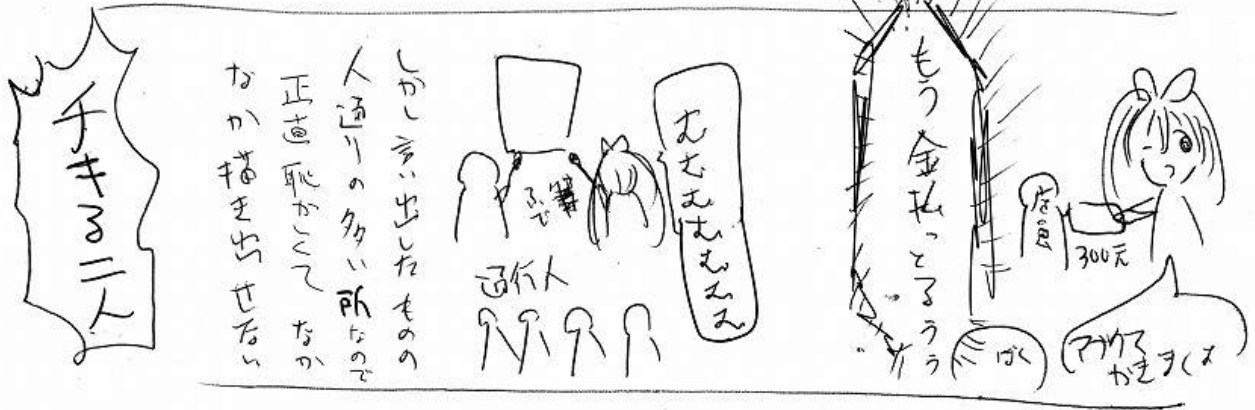 店員
300元
ばく
もう金払っとるぅぅ
むむむむむむむ
筆
ふで
通行人
しかし言い出したものの
人通りの多い所なので
正直恥かしくて なか
なか描き出せない
チキる二人